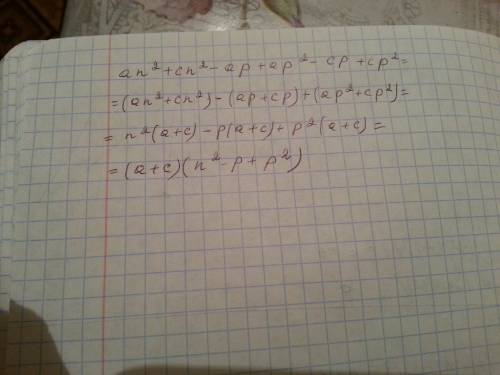 an²+cn²-ap+ap²-cp+cp²=
=(an²+cn²)-(ap+cp)+(ap²+cp²)=
=n²(a+c)-p(a+c)+p²(a+c)=
=(a+c)(n²-p+p²)